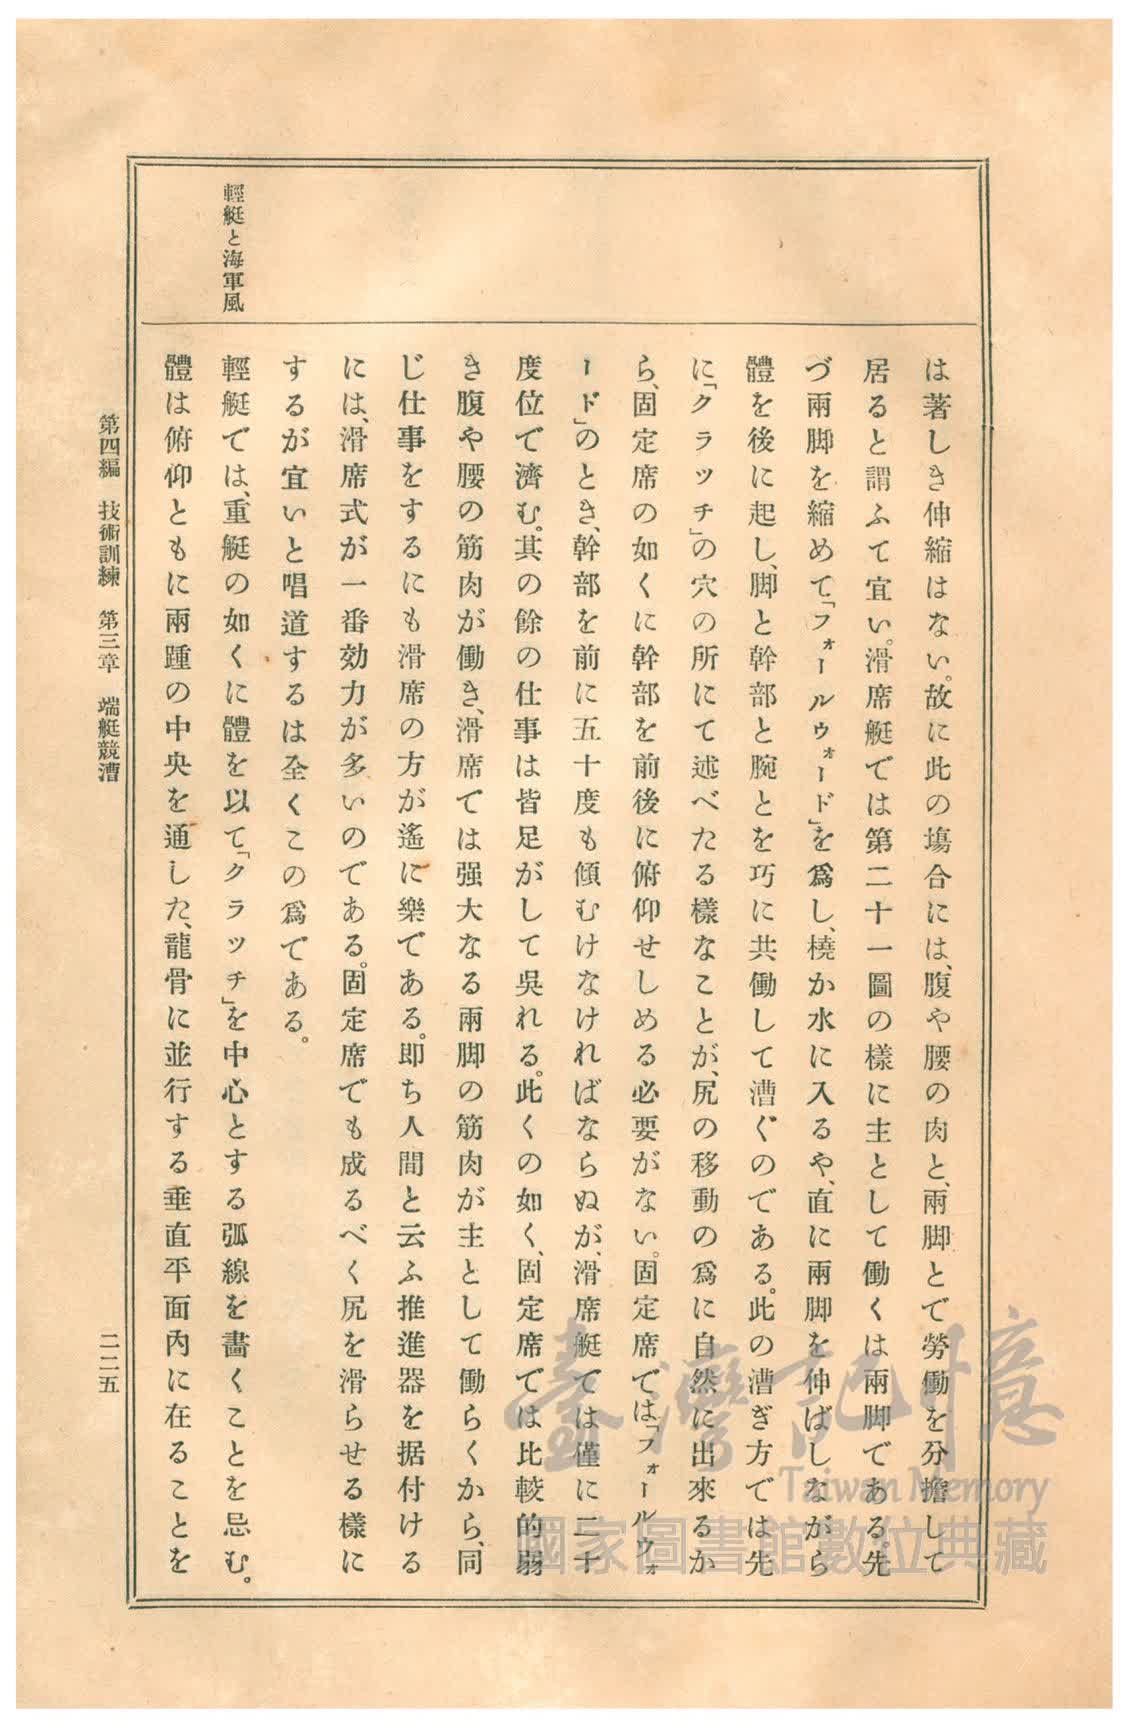 輕艇と海軍風
は著しき伸縮はない。故に此の塲合には、腹や腰の肉と、兩脚とで勞働を分擔して
居ると謂ふて宜い。滑席艇では第二十一圖の樣に主として働くは兩脚である。先
づ兩脚を縮めて「フォールウォード」を爲し、橈か水に入るや、直に兩脚を伸ばしながら
體を後に起し、脚と幹部と腕とを巧に共働して漕ぐのである。此の漕ぎ方では先
に「クラッチ」の穴の所にて述べたる樣なことが、尻の移動の爲に自然に出來るか
ら、固定席の如くに幹部を前後に俯仰せしめる必要がない。固定席では「フォールウォ
ード」のとき、幹部を前に五十度も傾むけなければならぬが、滑席艇では僅に二十
度位で濟む。其の餘の仕事は皆足がして吳れる。此くの如く、固定席では比較的弱
き腹や腰の筋肉が働き、滑席では强大なる兩脚の筋肉が主として働らくから、同
じ仕事をするにも滑席の方が遙に樂である。即ち人間と云ふ推進器を据付ける
には、滑席式が一番効力が多いのである。固定席でも成るべく尻を滑らせる樣に
するが宜いと唱道するは全くこの爲である。
輕艇では、重艇の如くに體を以て「クラッチ」を中心とする弧線を畵くことを忌む。
體は俯仰ともに兩踵の中央を通した、龍骨に並行する垂直平面內に在ることを
第四編 技術訓練 第三章 端艇競漕
二二五
臺灣記憶
Taiwan Memory
國家圖書館數位典藏